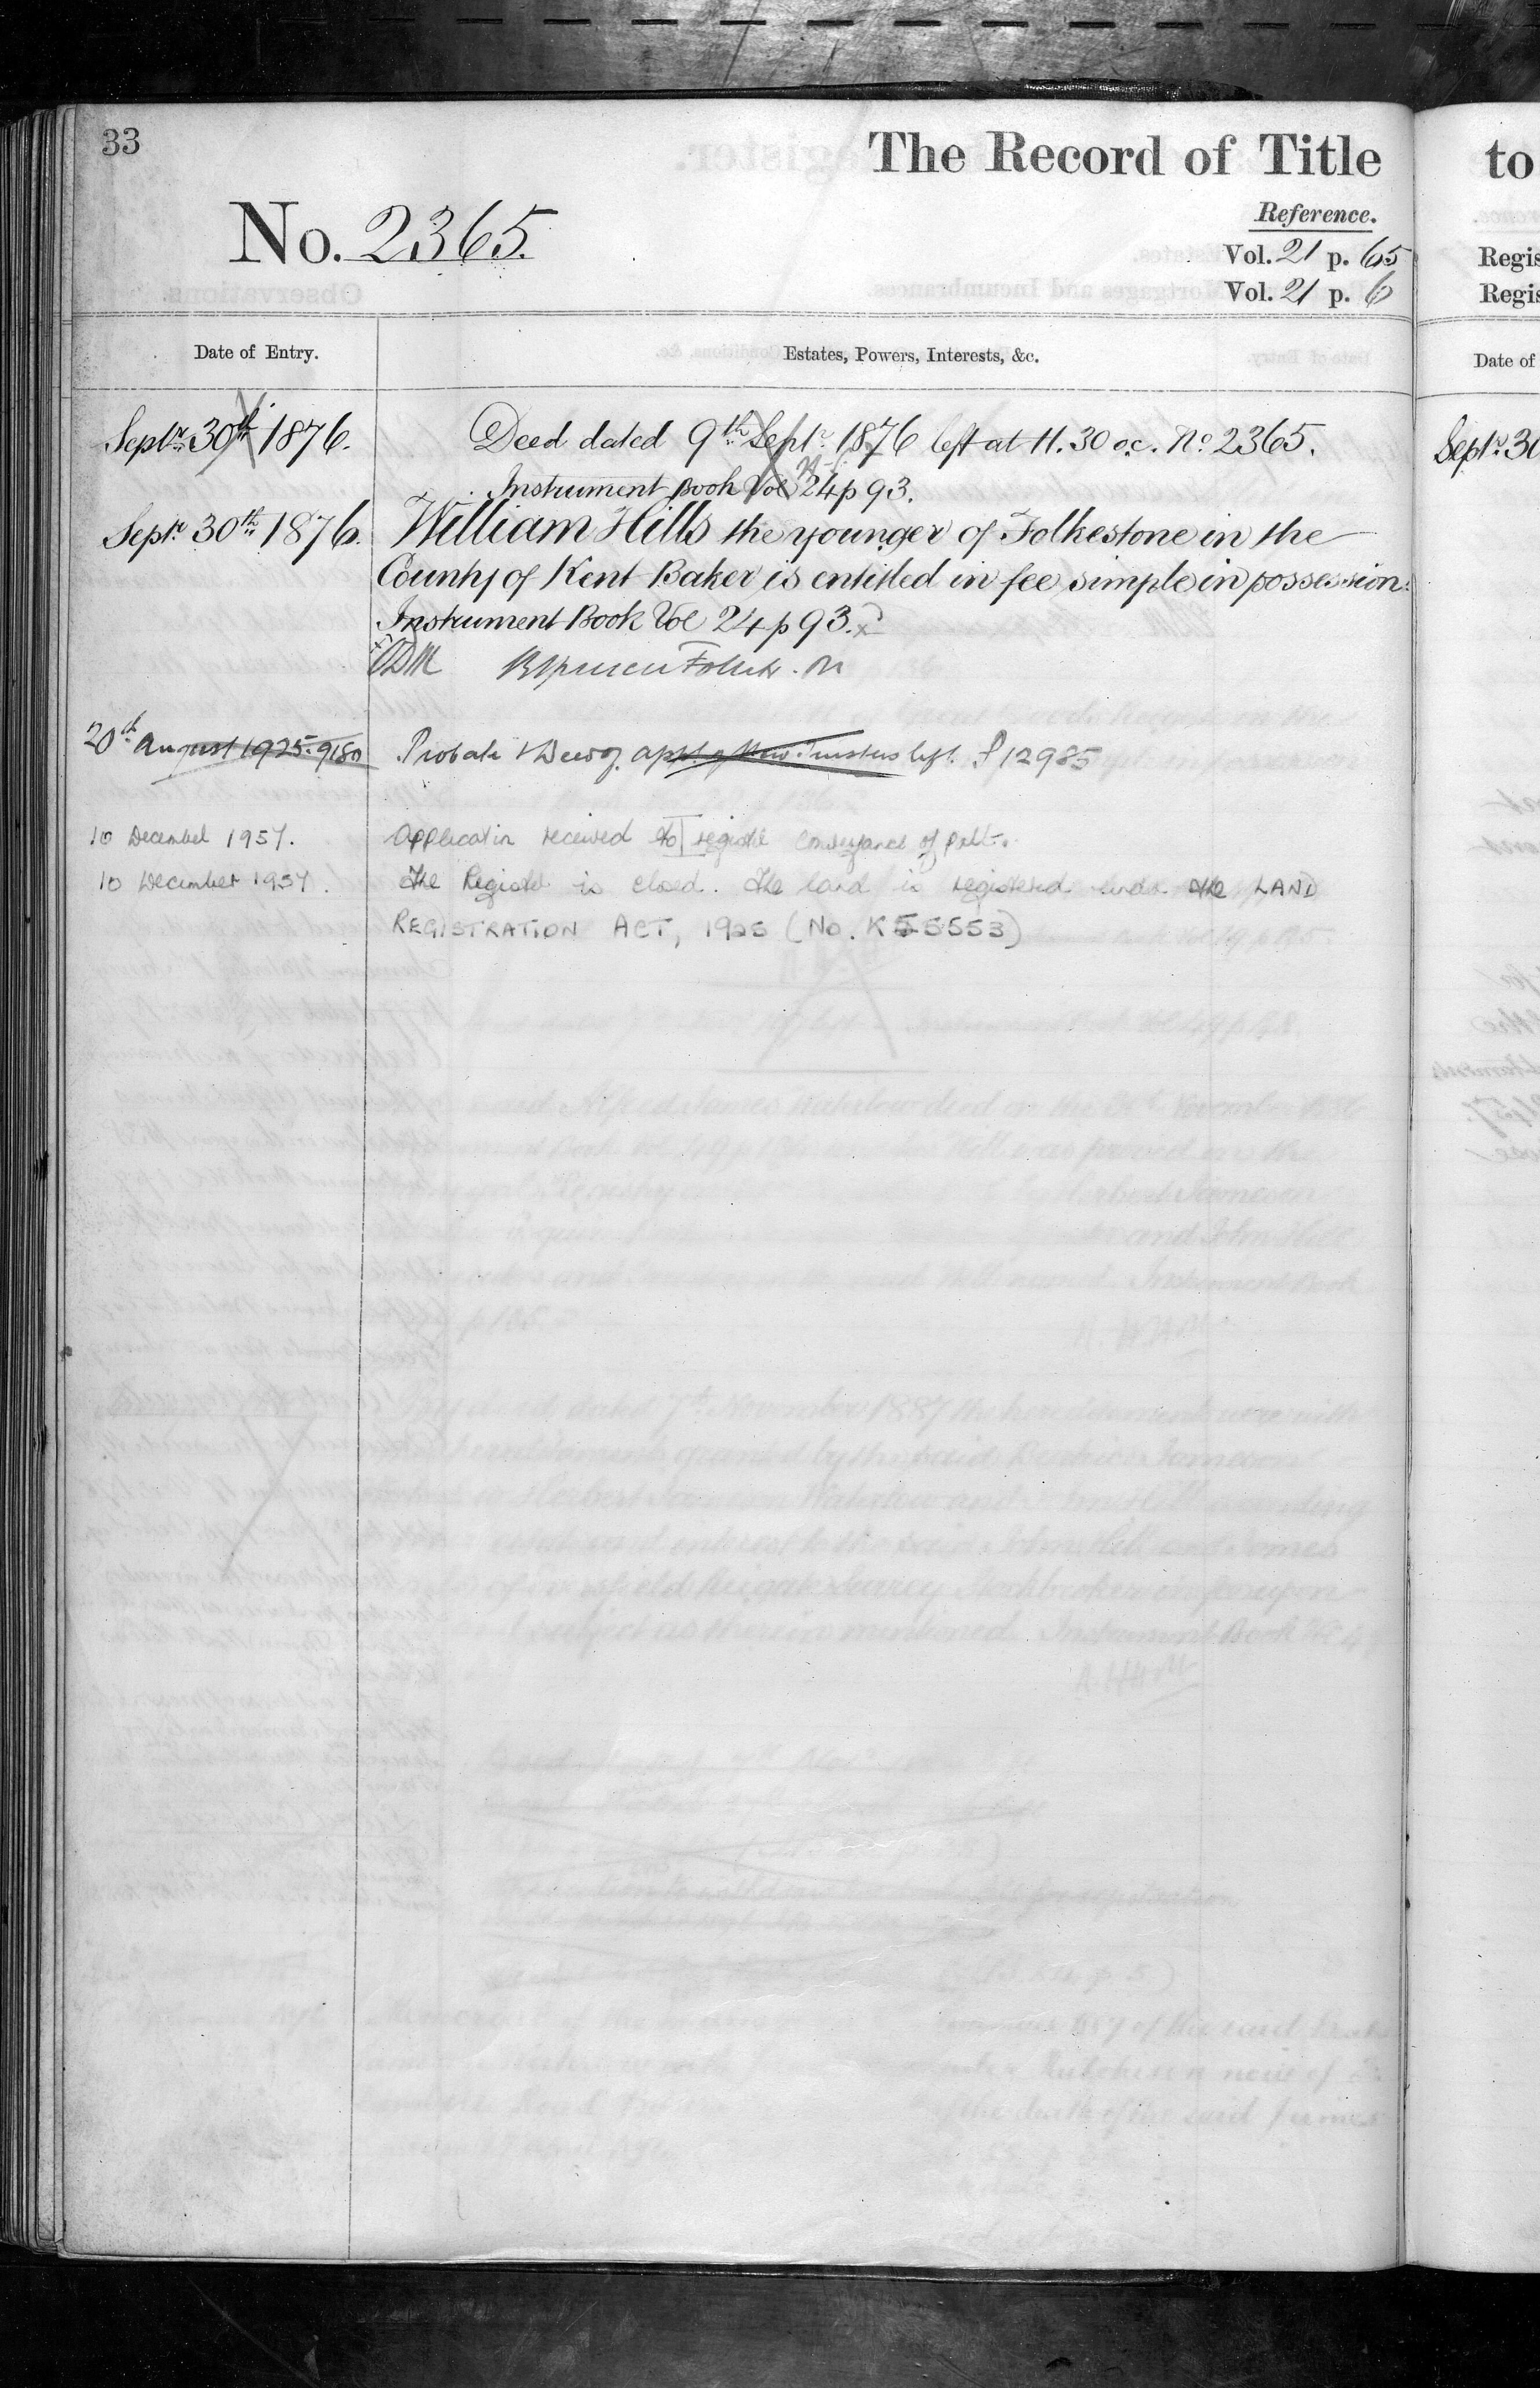 33
The Record of Title
to
Reference.
No. 2365.
Vol. 21 p. 65
Vol. 21 p. 6
Regis
Regis
Date of Entry.
Estates, Powers, Interests, &c.
Date of
Septr. 30th 1876.
Deed dated 9th Septr. 1876 left at 11.30 o.c. No. 2365.
Instrument Book Vol 24 p 93.
Septr. 30
Septr. 30th 1876.
William Hills the younger of Folkestone in the
County of Kent Baker is entitled in fee simple in possession.
Instrument Book Vol 24 p 93.
20th August 1925. 9180
Probate & Deed of appt. of New Trustees left. P 12985
10 December 1957.
Application received to register conveyance of part.
10 December 1957.
The Register is closed. The land is registered under the LAND
REGISTRATION ACT, 1925 (No. K55553)